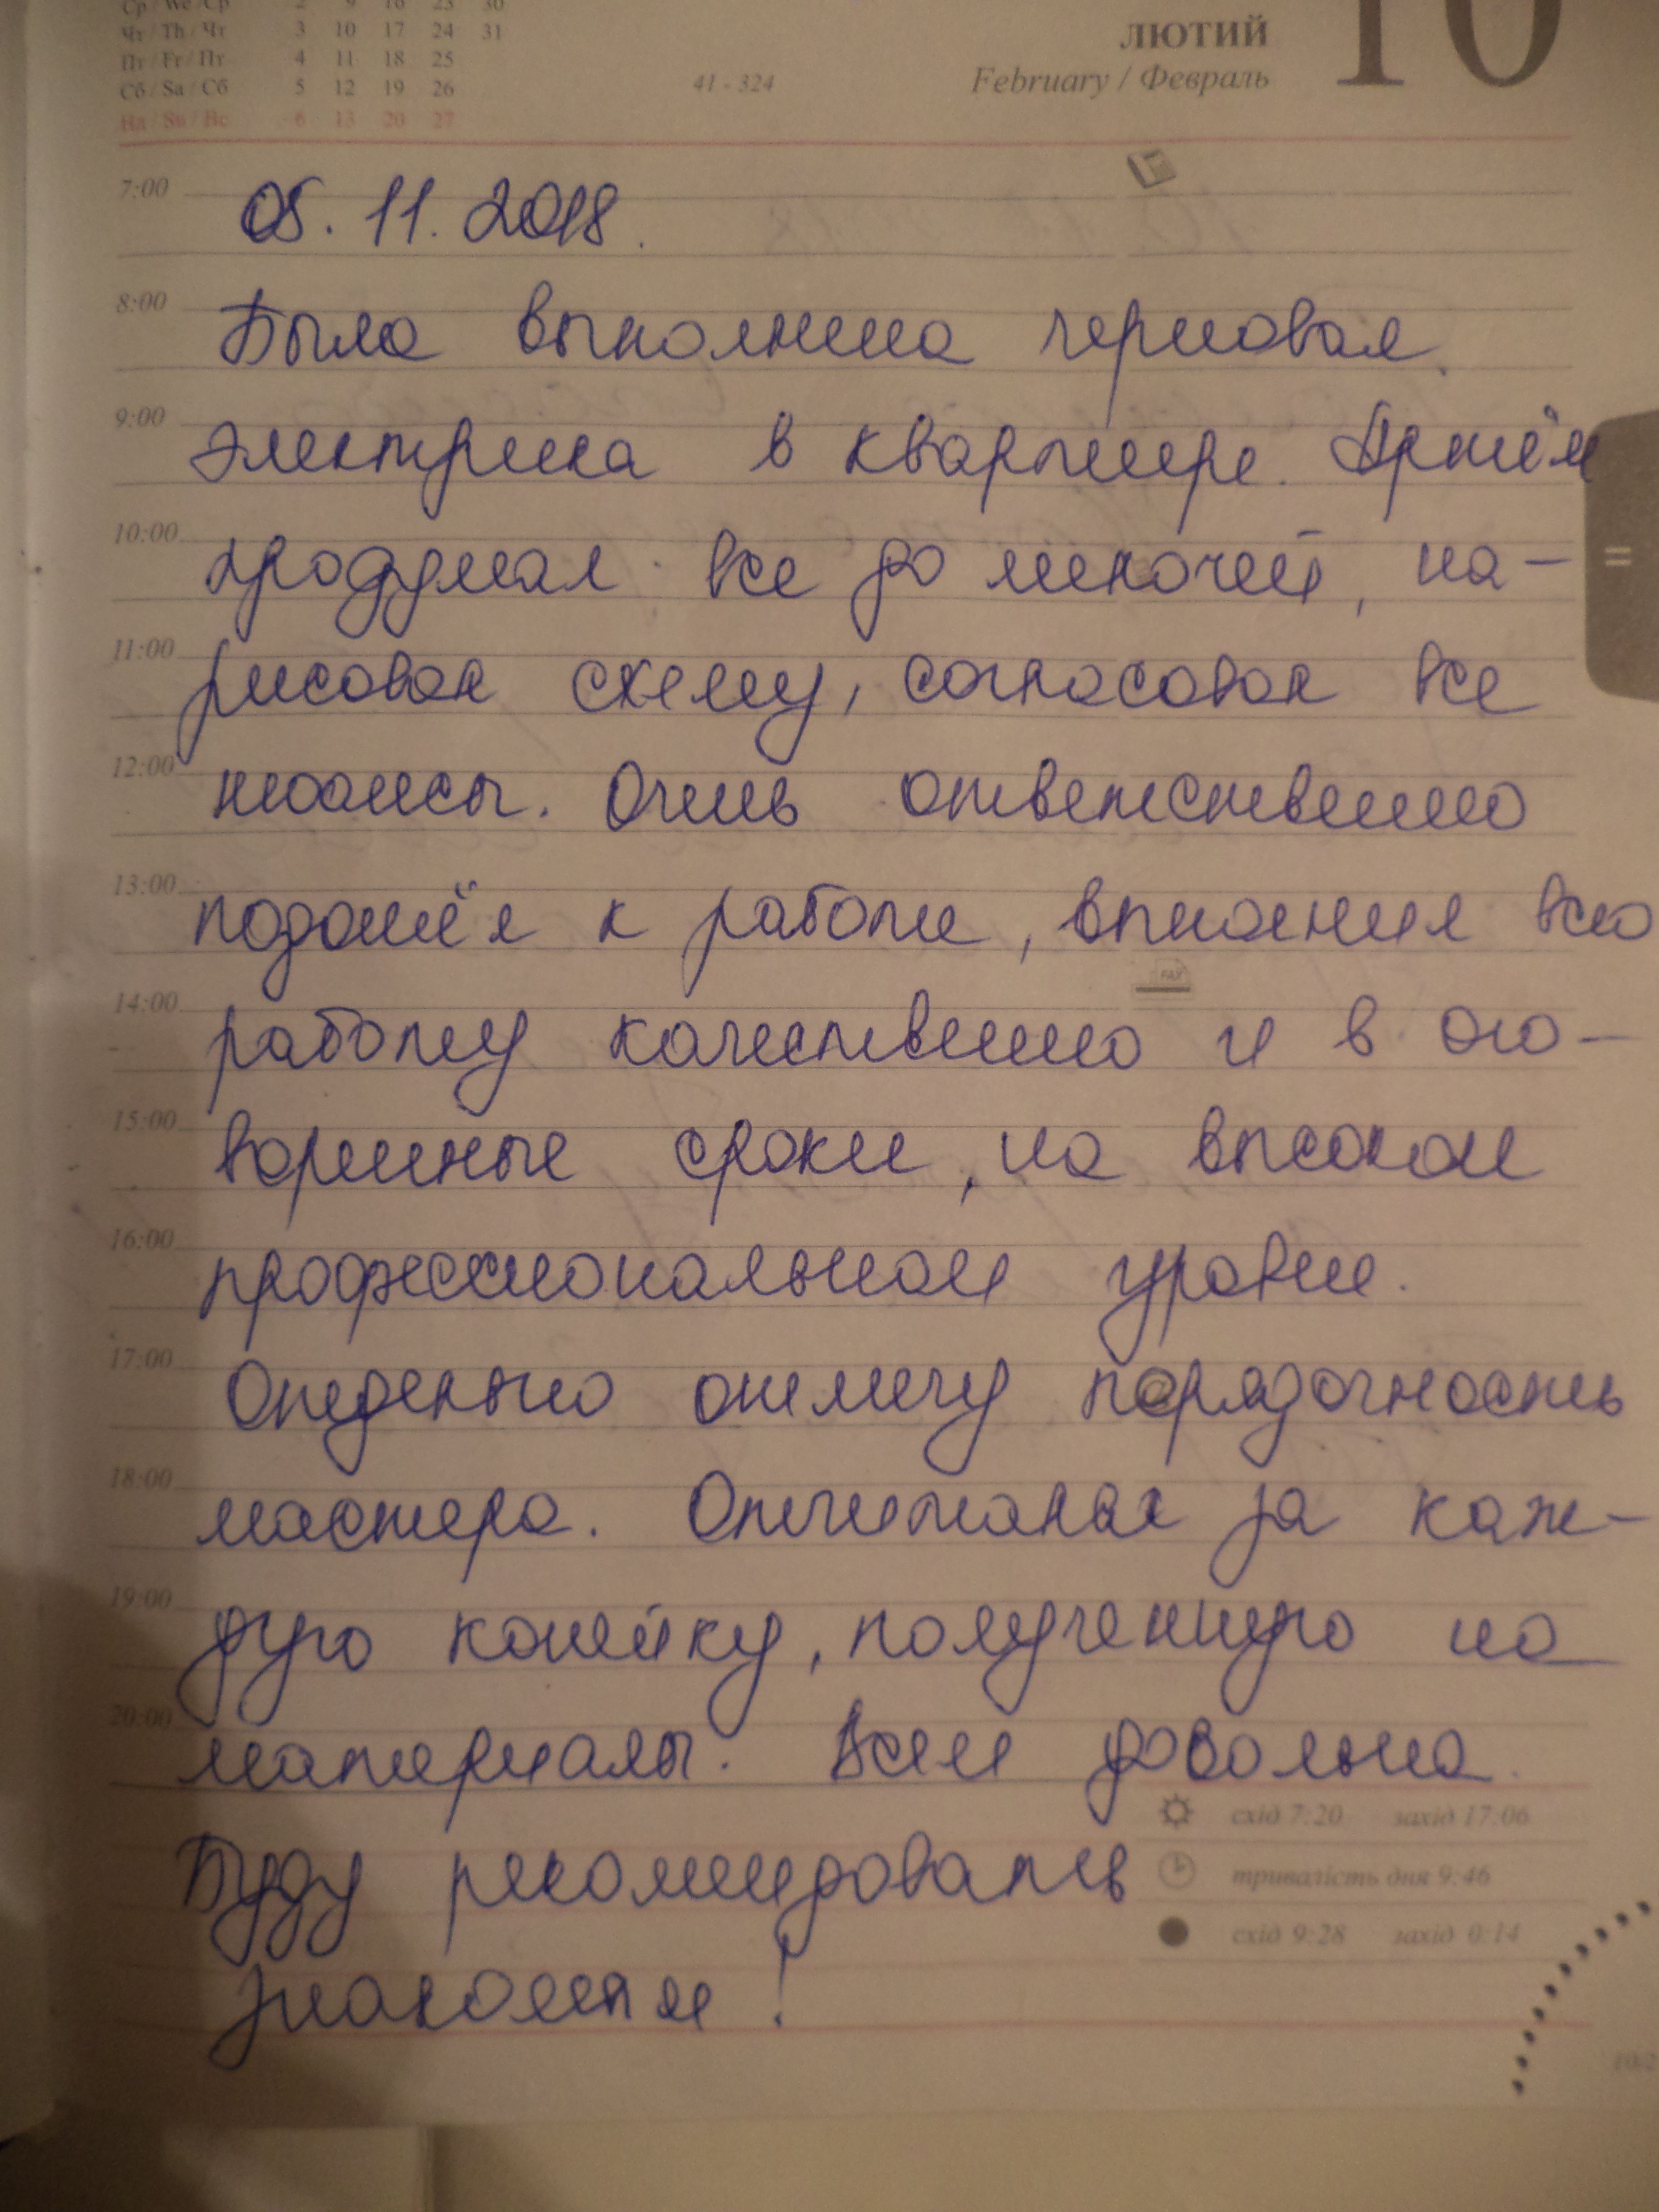 Ср / We / Ср 2 9 16 23 30
Чт / Th / Чт 3 10 17 24 31
Пт / Fr / Пт 4 11 18 25
Сб / Sa / Сб 5 12 19 26
Нд / Su / Вс 6 13 20 27
41 - 324
ЛЮТИЙ
February / Февраль
10
7:00
05.11.2018.
8:00
Была выполнена черновая
9:00
электрика в квартире. Артём
10:00
продумал все до мелочей, на-
11:00
рисовал схему, согласовал все
12:00
нюансы. Очень ответственно
13:00
подошёл к работе, выполнил всю
14:00
работу качественно и в ого-
15:00
воренные сроки, на высоком
16:00
профессиональном уровне.
17:00
Отдельно отмечу порядочность
18:00
мастера. Отчитался за каж-
19:00
дую копейку, полученную на
20:00
материалы. Всем довольна.
Буду рекомендовать
знакомым!
FAX
схід 7:20 захід 17:06
тривалість дня 9:46
схід 9:28 захід 0:14